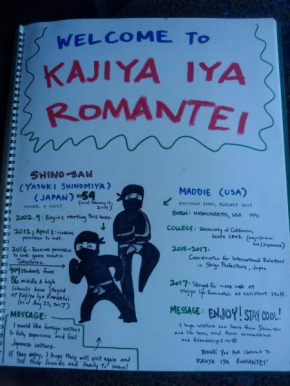 WELCOME TO
KAJIYA IYA
ROMANTEI
SHINO-SAN
(YASUKI SHINOMIYA)
(JAPAN) 59
2002.9: Begins renting this house
2012, April 1:
2016: Receives permission
to cook game meat in
Tokushima
students from
86 middle & high
schools have stayed
at Kajiya Iya Romantei
MESSAGE:
I would like foreign visitors
to fully experience and feel
Japanese culture.
If they enjoy, I hope they will visit again and
tell their friends and family to come!
MADDIE (USA)
ASSISTANT STAFF, AUGUST 2017
BORN: USA 1991
COLLEGE: University of California,
SANTA CRUZ
2015-2017:
Coordinator for International Relations
in Shiga Prefecture, Japan
2017: Stayed for one week at
Kajiya Iya Romantei as assistant staff
MESSAGE: ENJOY! STAY COOL!
I hope visitors can learn from Shino-san
and Iya
THANK YOU FOR COMING TO
KAJIYA IYA ROMANTEI!